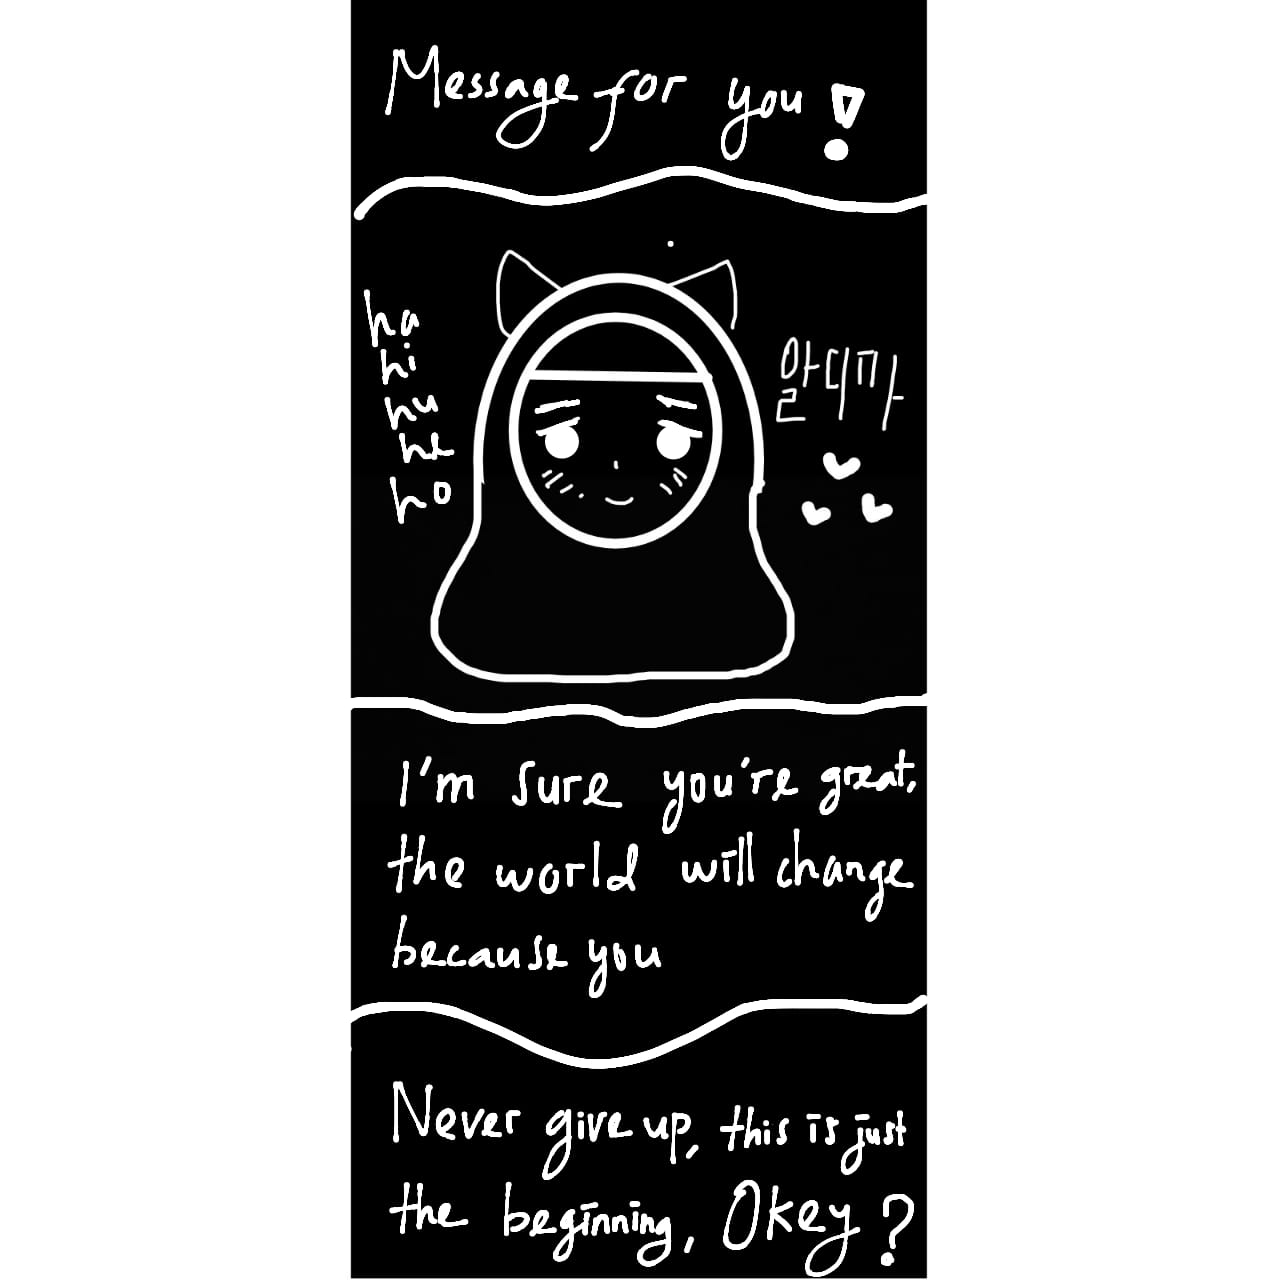 Message for you!
ha
hi
hu
he
ho
알디까
I'm sure you're great,
the world will change
because you
Never give up, this is just
the beginning, Okey?